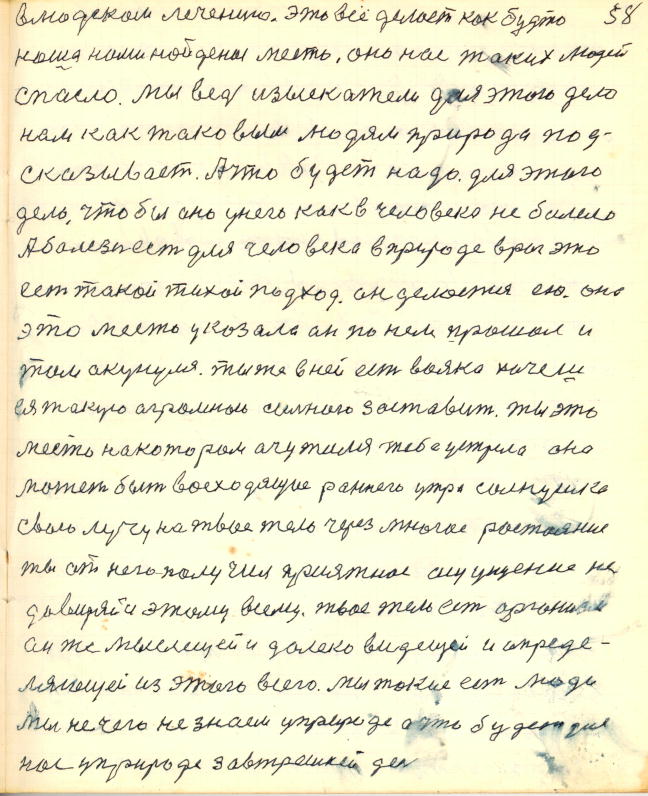 в людском лечению. Это всё делает как будто 58
наша нами найдены место. оно нас таких людей
спасло. Мы ведь изыскатели для этого дело
нам как таковым людям природа под-
сказывает. А что будет надо. для этого
дело, чтобы оно у него как в человека не болело
А болезн ест для человека в природе враг это
ест такой тихой подход. он делается ею. она
это место указала он по нем прошол и
там окунуля. ты же в ней ест вояка хочеш
ся такую огромною силного заставит. ты это
место на котором очутился тебе устрела она
может быт восходящие раннего утра солнушка
свою лучу на твое тело через многое ростояние
ты от него получил приятное ощущение не
доверяй и этому всему. твое тело ест организм
он же мыслещей и далеко видещей и опреде-
ляющей из этого всего. мы такие ест люди
мы не чего не знаем у природе а что будет для
нас у природе завтрешней ден